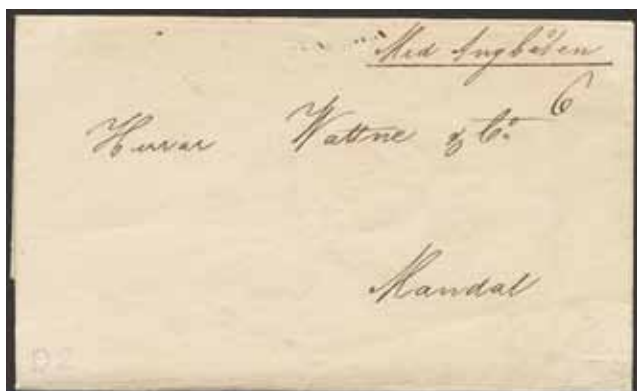 Med Ångbåten
6
Herrar Wattne & Co
Mandal
D2